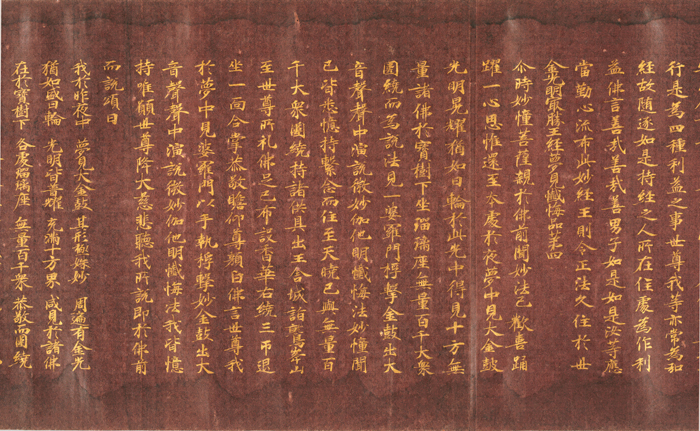 行是為四種利益之事世尊我等亦常為加
經故隨逐如是持經之人所在住處為作利
益佛言善哉善哉善男子如是如是汝等應
當勤心流布此妙經王則令正法久住於世
金光明最勝王經夢見懺悔品第四
尒時妙幢菩薩親於佛前聞妙法已歡喜踊
躍一心思惟還至本處於夜夢中見大金鼓
光明晃耀猶如日輪於此光中得見十方無
量諸佛於寶樹下坐瑠璃座無量百千大衆
圍繞而為說法見一婆羅門桴擊金鼓出大
音聲聲中演說微妙伽他明懺悔法妙幢聞
已皆悉憶持繫念而住至天曉已與無量百
千大衆圍繞持諸供具出王舍城詣鷲峯山
至世尊所礼佛足已布設香華右繞三帀退
坐一面合掌恭敬瞻仰尊顏白佛言世尊我
於夢中見婆羅門以手執桴擊妙金鼓出大
音聲聲中演說微妙伽他明懺悔法我皆憶
持唯願世尊降大慈悲聽我所說即於佛前
而說頌曰
我於昨夜中 夢見大金鼓 其形極姝妙 周遍有金光
猶如盛日輪 光明皆普耀 充滿十方界 咸見於諸佛
在於寶樹下 各處瑠璃座 無量百千衆 恭敬而圍繞